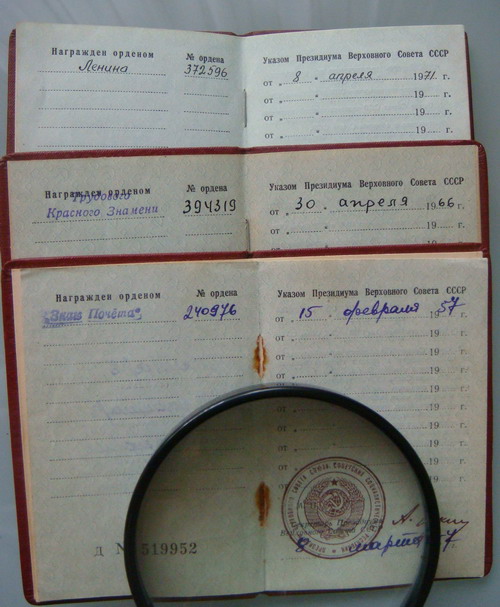 Награжден орденом № ордена Указом Президиума Верховного Совета СССР
Ленина 372596 от „ 8 " апреля 1971 г.
от „ " 19 г.
от „ " 19 г.
от „ " 19 г.
Награжден орденом № ордена Указом Президиума Верховного Совета СССР
Трудового
Красного Знамени 394319 от „ 30 " апреля 1966 г.
от „ " 19 г.
Награжден орденом № ордена Указом Президиума Верховного Совета СССР
„Знак Почёта" 240976 от „ 15 " февраля 1957 г.
от „ " 19 г.
от „ " 19 г.
от „ " 19 г.
от „ " 19 г.
от „ " 19 г.
от „ " 19 г.
от „
Д № 519952 8 марта 7 г.